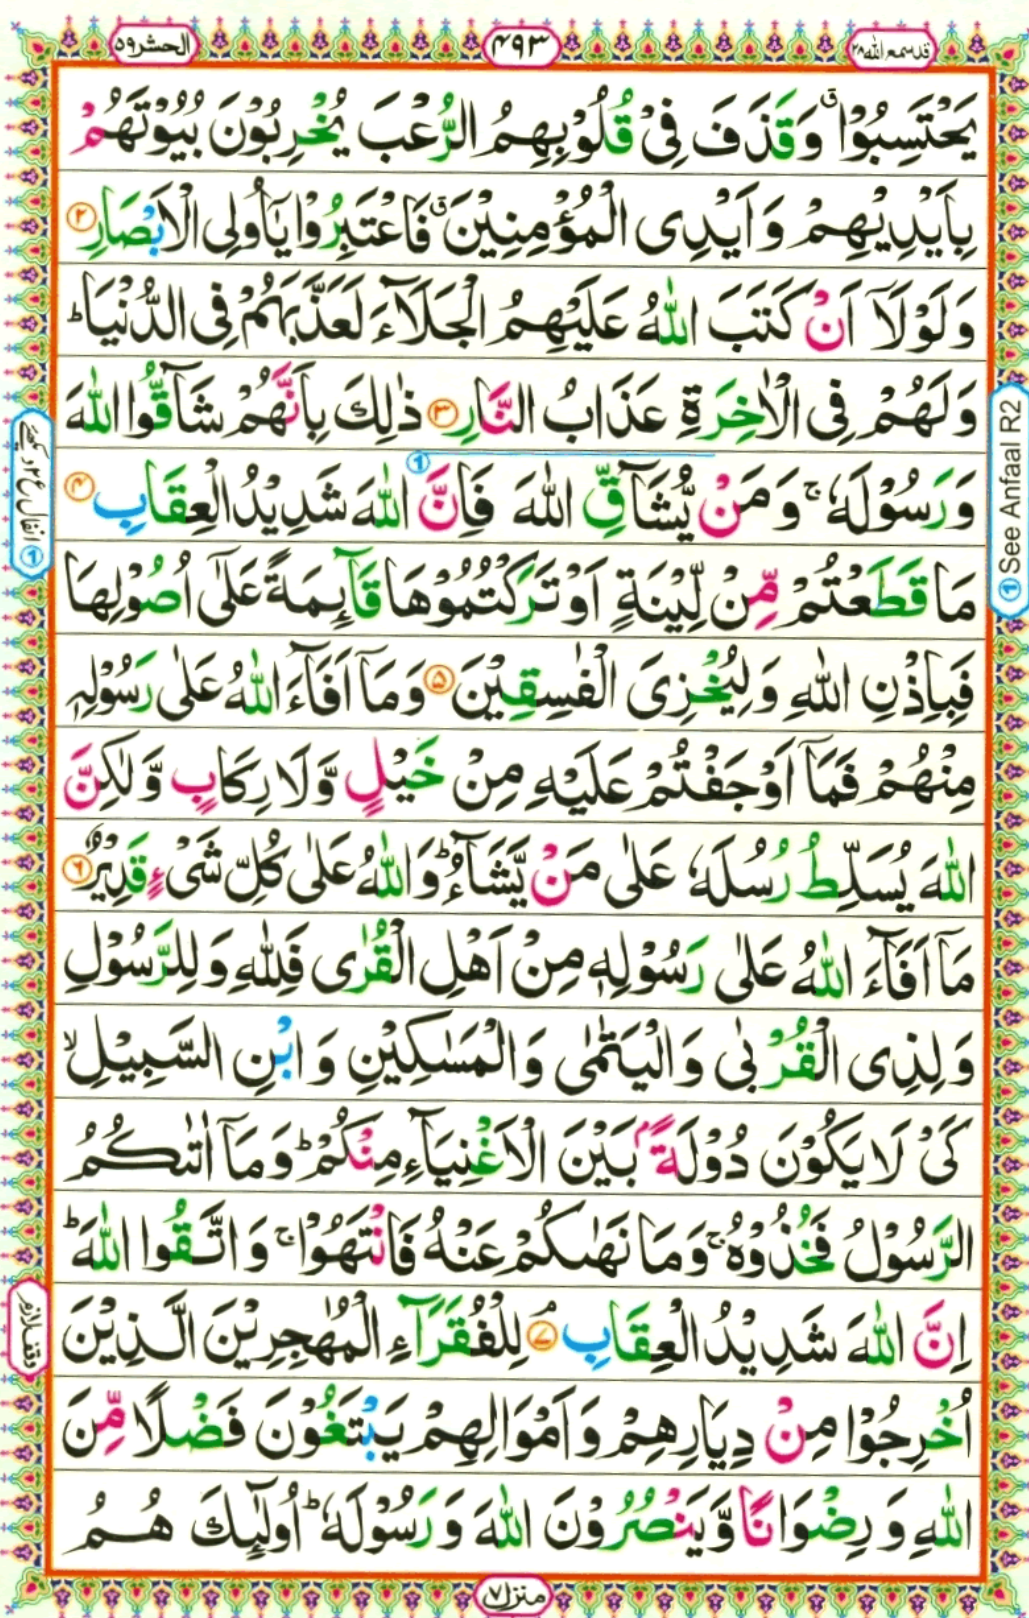 قد سمع الله ٢٨
٤٩٣
الحشر ٥٩
يَحْتَسِبُوْا ۗ وَقَذَفَ فِىْ قُلُوْبِهِمُ الرُّعْبَ يُخْرِبُوْنَ بُيُوْتَهُمْ
بِاَيْدِيْهِمْ وَاَيْدِى الْمُؤْمِنِيْنَ ۗ فَاعْتَبِرُوْا يٰۤاُولِى الْاَبْصَارِ ۝٢
وَلَوْلَاۤ اَنْ كَتَبَ اللّٰهُ عَلَيْهِمُ الْجَلَاۤءَ لَعَذَّبَهُمْ فِى الدُّنْيَا ؕ
وَلَهُمْ فِى الْاٰخِرَةِ عَذَابُ النَّارِ ۝٣ ذٰلِكَ بِاَنَّهُمْ شَآقُّوا اللّٰهَ
وَرَسُوْلَهٗ ۚ وَمَنْ يُّشَآقِّ اللّٰهَ فَاِنَّ اللّٰهَ شَدِيْدُ الْعِقَابِ ۝٤
مَا قَطَعْتُمْ مِّنْ لِّيْنَةٍ اَوْ تَرَكْتُمُوْهَا قَآئِمَةً عَلٰٓى اُصُوْلِهَا
فَبِاِذْنِ اللّٰهِ وَلِيُخْزِىَ الْفٰسِقِيْنَ ۝٥ وَمَاۤ اَفَآءَ اللّٰهُ عَلٰى رَسُوْلِهٖ
مِنْهُمْ فَمَاۤ اَوْجَفْتُمْ عَلَيْهِ مِنْ خَيْلٍ وَّلَا رِكَابٍ وَّلٰكِنَّ
اللّٰهَ يُسَلِّطُ رُسُلَهٗ عَلٰى مَنْ يَّشَآءُ ؕ وَاللّٰهُ عَلٰى كُلِّ شَىْءٍ قَدِيْرٌ ۝٦
مَاۤ اَفَآءَ اللّٰهُ عَلٰى رَسُوْلِهٖ مِنْ اَهْلِ الْقُرٰى فَلِلّٰهِ وَلِلرَّسُوْلِ
وَلِذِى الْقُرْبٰى وَالْيَتٰمٰى وَالْمَسٰكِيْنِ وَابْنِ السَّبِيْلِ ۙ
كَىْ لَا يَكُوْنَ دُوْلَةًۢ بَيْنَ الْاَغْنِيَآءِ مِنْكُمْ ؕ وَمَاۤ اٰتٰىكُمُ
الرَّسُوْلُ فَخُذُوْهُ ۚ وَمَا نَهٰىكُمْ عَنْهُ فَانْتَهُوْا ۚ وَاتَّقُوا اللّٰهَ ؕ
اِنَّ اللّٰهَ شَدِيْدُ الْعِقَابِ ۝٧ۘ لِلْفُقَرَآءِ الْمُهٰجِرِيْنَ الَّذِيْنَ
اُخْرِجُوْا مِنْ دِيَارِهِمْ وَاَمْوَالِهِمْ يَبْتَغُوْنَ فَضْلًا مِّنَ
اللّٰهِ وَرِضْوَانًا وَّيَنْصُرُوْنَ اللّٰهَ وَرَسُوْلَهٗ ؕ اُولٰٓئِكَ هُمُ
① See Anfaal R2
① انفال ع ٢ دیکھئے
وقف لازم
منزل ٧